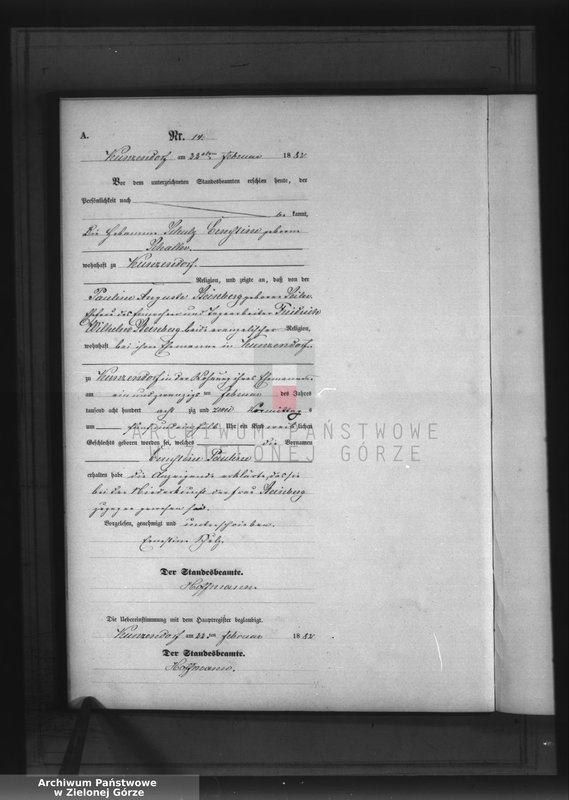 A. Nr. 14.
Kunzendorf am 22 ten Februar 1882
Vor dem unterzeichneten Standesbeamten erschien heute, der
Persönlichkeit nach
be kannt,
Die Hebamme Schulz Ernstine geborene
Schaller
wohnhaft zu Kunzendorf.
Religion, und zeigte an, daß von der
Pauline Auguste Steinberg geborene
Ehefrau des und Tagearbeiter Friedrich
Wilhelm Steinberg beide evangelischer Religion,
wohnhaft bei ihrem Ehemanne in Kunzendorf.
zu Kunzendorf in der Wohnung ihres Ehemannes.
am ein und zwanzigsten Februar des Jahres
tausend acht hundert acht zig und zwei Vormittag s
um fünf und Uhr ein Kind weib lichen
Geschlechts geboren worden sei, welches die Vornamen
Ernstine Pauline
erhalten habe die Anzeigende erklärte, das sie
bei der Niederkunft der Frau Steinberg
zugegen gewesen sei.
Vorgelesen, genehmigt und unterschrieben.
Ernestine
Der Standesbeamte.
Hoffmann.
Die Uebereinstimmung mit dem Hauptregister beglaubigt.
Kunzendorf am 22 ten Februar 1882
Der Standesbeamte.
Hoffmann.
ARCHIWUM PAŃSTWOWE
W ZIELONEJ GÓRZE
Archiwum Państwowe
w Zielonej Górze